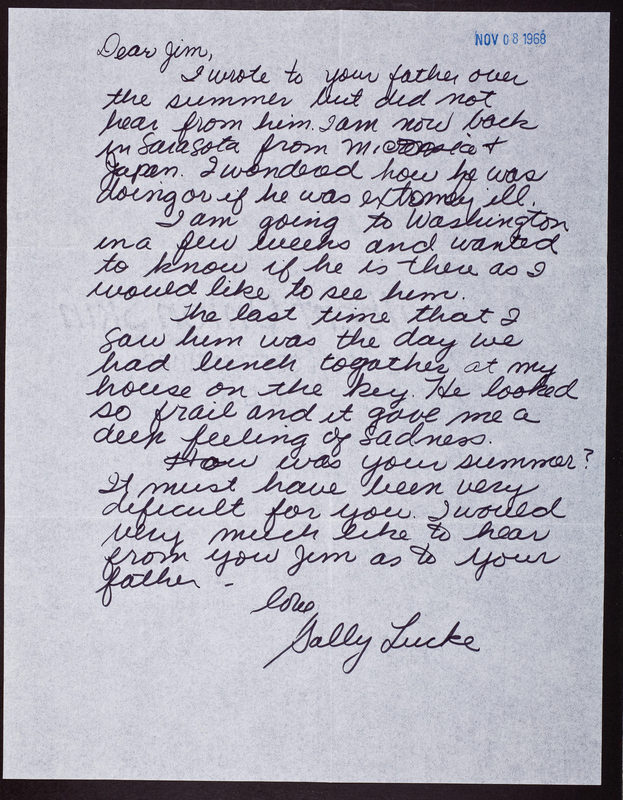 NOV 08 1968
Dear Jim,
I wrote to your father over
the summer but did not
hear from him. I am now back
in Sarasota from &
Japan. I wondead how he was
doing or if he was ill.
I am going to Washington
in a few weens and wanted
to know if he is there as I
would like to see him.
The last time that I
saw him was the day we
had lunch togather at my
house on the key. He looked
so frail and it gave me a
deep feeling of sadness.
How was your summer?
It must have been very
dificult for you. I would
very much like to hear
from you Jim as to your
father -
love
Sally Lucke